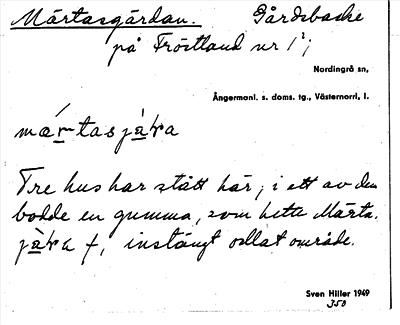 Märtasgärdan. Gårdsbacke
på Fröstland nr 1²;
Nordingrå sn,
Ångermanl. s. doms. tg., Västernorrl. l.
mártasjàra
Tre hus har stått här; i ett av dem
bodde en gumma, som hette Märta.
jàra f, instängt odlat område.
Sven Hiller 1949
350